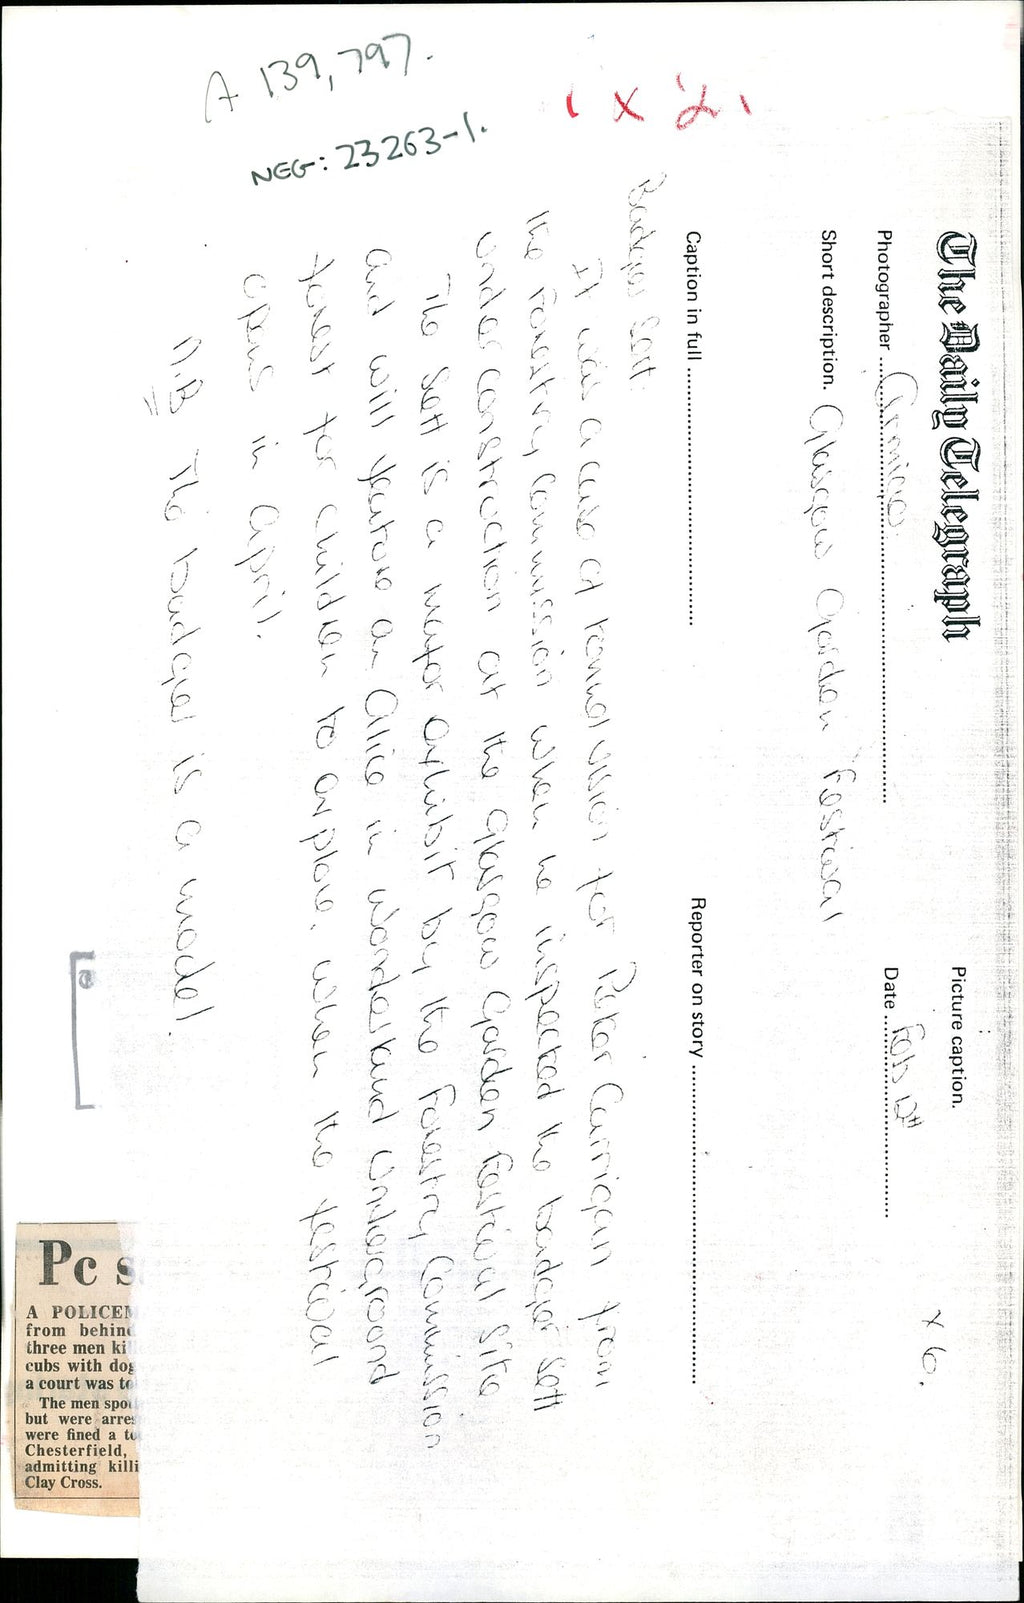 A 139,797.
NEG: 23263-1.
1 x 2 1
The Daily Telegraph
Picture caption.
Photographer
Date Feb 12th
x 6.
Short description. Glasgow Garden Festival
Caption in full
Reporter on story
Badger Sett.
It was a case of tunnel vision for Peter Currigan from
the Forestry Commission when he inspected the badger sett
under construction at the Glasgow Garden Festival site
The sett is a major exhibit by the Forestry Commission
and will feature an Alice in Wonderland Underground
forest for children to explore, when the festival
opens in April.
N.B The badger is a model.
Pc s
A POLICEM
from behind
three men ki
cubs with dog
a court was to
The men spot
but were arres
were fined a to
Chesterfield,
admitting killi
Clay Cross.